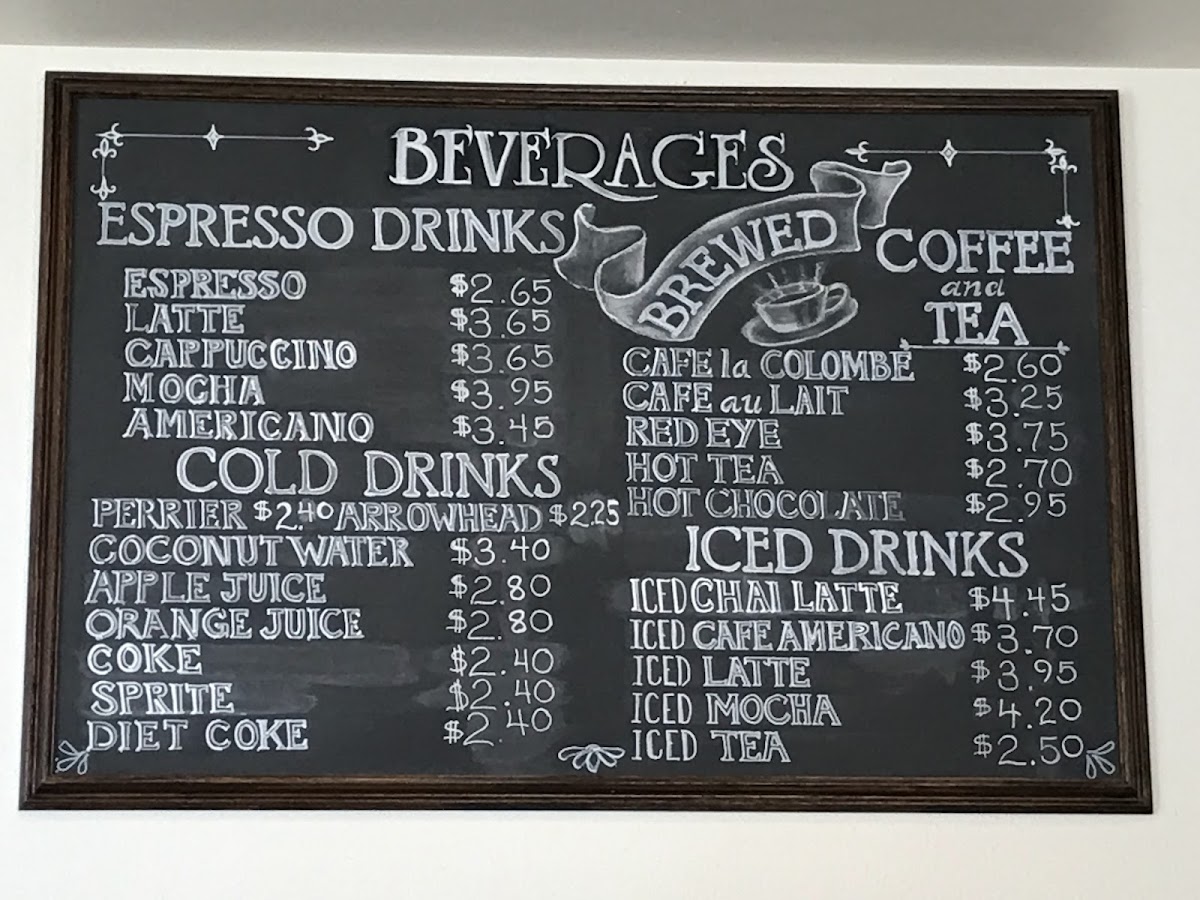 BEVERAGES
ESPRESSO DRINKS
ESPRESSO $2.65
LATTE $3.65
CAPPUCCINO $3.65
MOCHA $3.95
AMERICANO $3.45
COLD DRINKS
PERRIER $2.40 ARROWHEAD $2.25
COCONUT WATER $3.40
APPLE JUICE $2.80
ORANGE JUICE $2.80
COKE $2.40
SPRITE $2.40
DIET COKE $2.40
BREWED
COFFEE
and
TEA
CAFE la COLOMBE $2.60
CAFE au LAIT $3.25
RED EYE $3.75
HOT TEA $2.70
HOT CHOCOLATE $2.95
ICED DRINKS
ICED CHAI LATTE $4.45
ICED CAFE AMERICANO $3.70
ICED LATTE $3.95
ICED MOCHA $4.20
ICED TEA $2.50